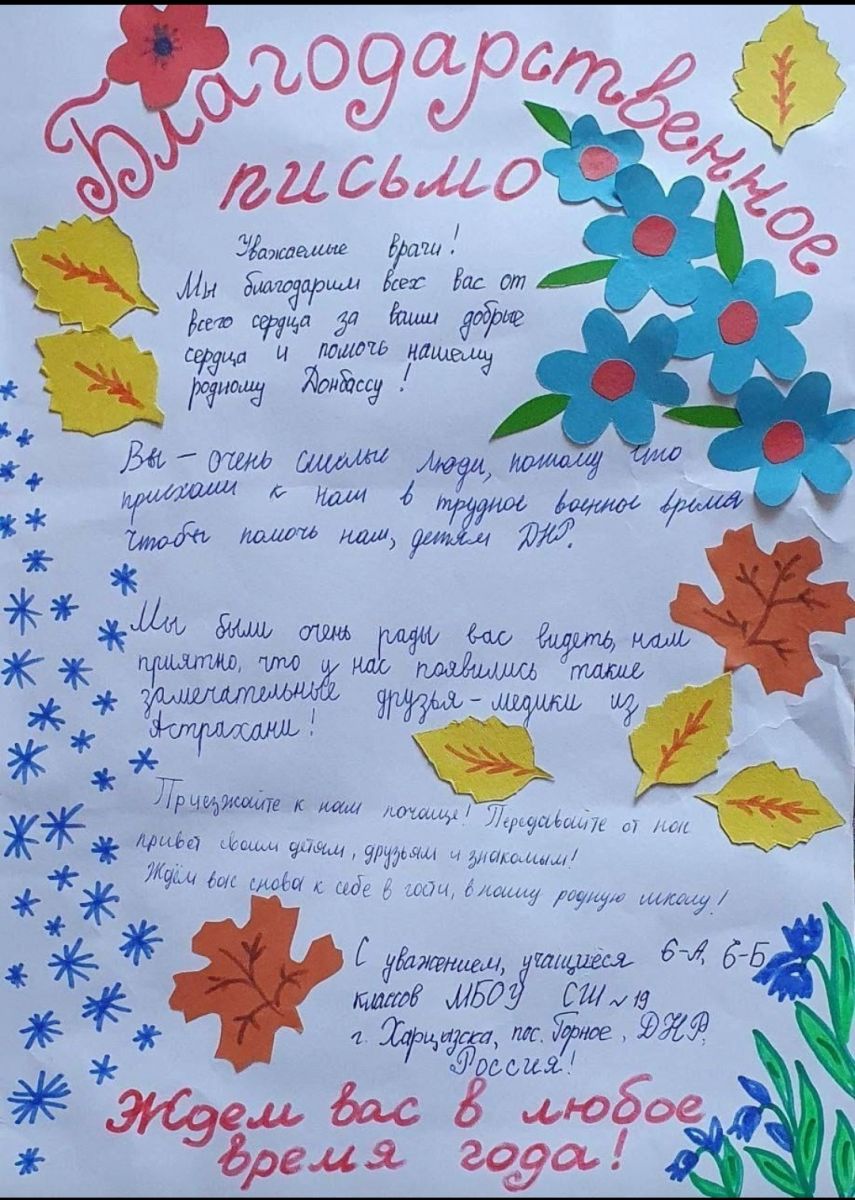 Благодарственное
письмо
Уважаемые врачи!
Мы благодарим всех вас от
всего сердца за ваши добрые
сердца и помочь нашему
родному Донбассу!
Вы – очень смелые люди, потому что
приехали к нам в трудное военное время
чтобы помочь нам, детям ДНР.
Мы были очень рады вас видеть, нам
приятно, что у нас появились такие
замечательные друзья – медики из
Астрахани!
Приезжайте к нам почаще! Передавайте от нас
привет своим детям, друзьям и знакомым!
Ждём вас снова к себе в гости, в нашу родную школу!
С уважением, учащиеся 6-А, 6-Б
классов МБОУ СШ №19
г. Харцызска, пос. Горное, ДНР,
Россия!
Ждем вас в любое
время года!